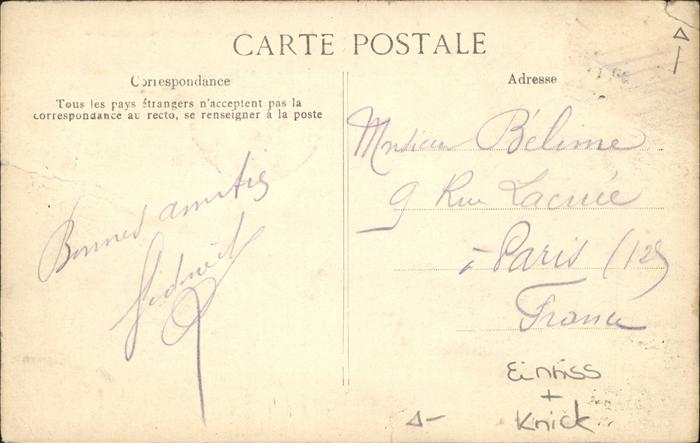 CARTE POSTALE
Correspondance
Tous les pays étrangers n'acceptent pas la
correspondance au recto, se renseigner à la poste
Bonnes amitiés
Adresse
Monsieur Bélime
9 Rue Lacuée
à Paris (12)
France
Einriss
+
Knick